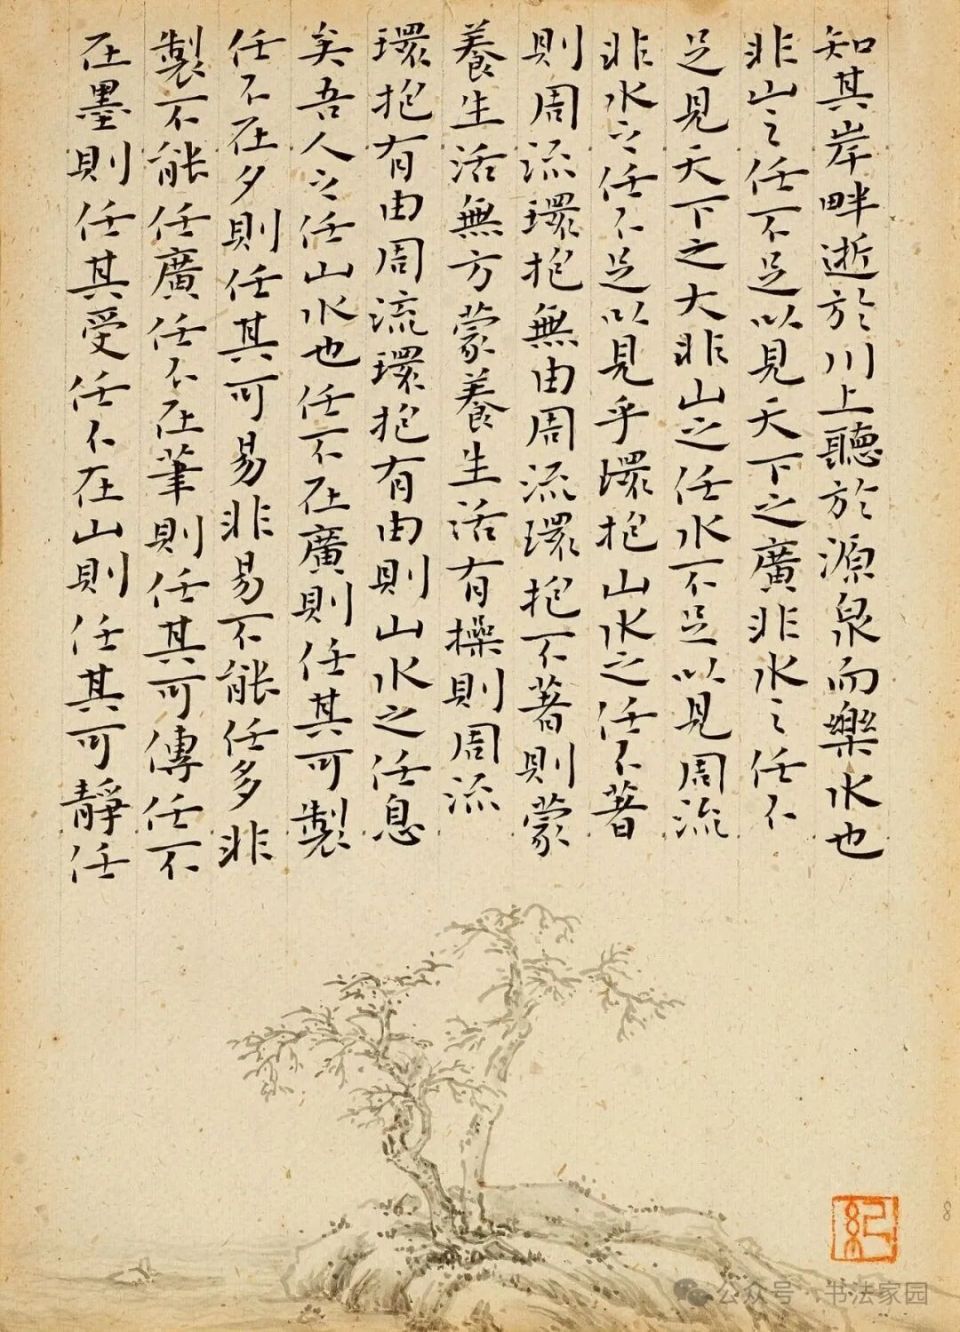 知其岸畔逝於川上聽於源泉而樂水也
非山之任不足以見天下之廣非水之任不
足見天下之大非山之任水不足以見周流
非水之任不足以見乎環抱山水之任不著
則周流環抱無由周流環抱不著則蒙
養生活無方蒙養生活有操則周流
環抱有由周流環抱有由則山水之任息
矣吾人之任山水也任不在廣則任其可製
任不在夕則任其可易非易不能任多非
製不能任廣任不在筆則任其可傳任不
在墨則任其受任不在山則任其可靜任
紀
8
公众号 · 书法家园